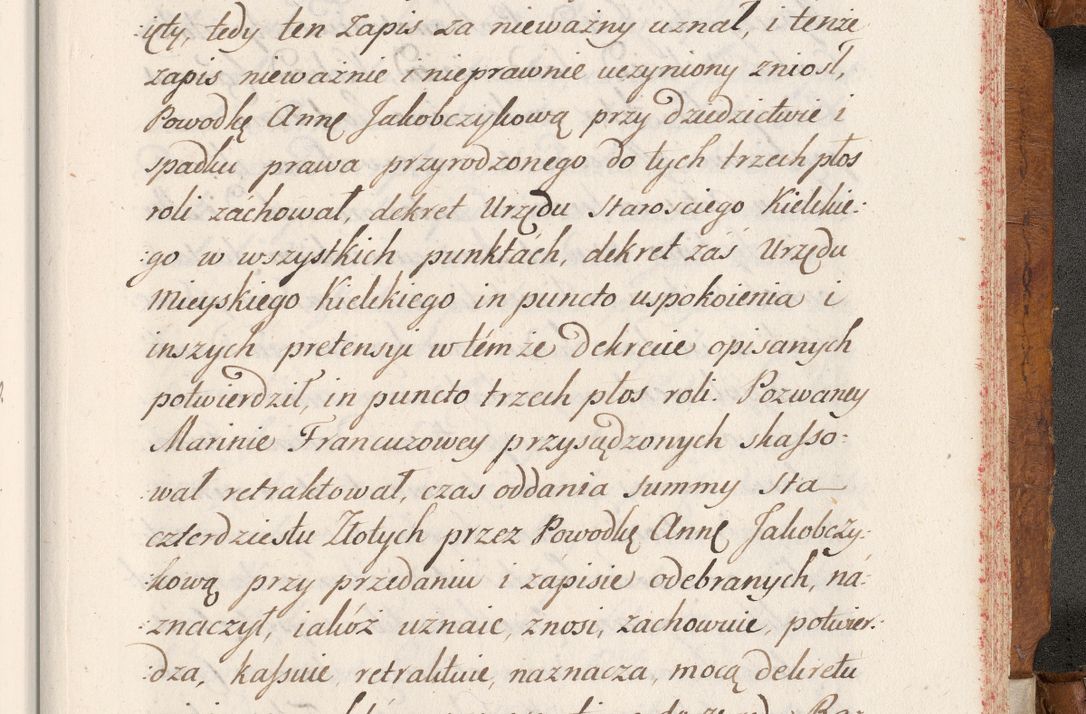 ięty, tedy ten Zapis za nieważny uznał, i tenże
zapis nieważnie i nieprawnie uczyniony zniosł,
Powodkę Annę Jakobczykową przy dziedzictwie i
spadku prawa przyrodzonego do tych trzech płos
roli záchował, dekret Urzędu Starosciego Kielckie:
:go w wszystkich punktách, dekret záś Urzędu
Mieyskiego Kielckiego in puncto uspokoienia i
inszych pretensyi w témże dekrecie opisanych
potwierdził, in puncto trzech płos roli. Pozwaney
Marinie Francuzowey przysądzonych skaſso:
:wał retraktował, czas oddania summy sta
czterdziestu Złotych przez Powodkę Annę Jakobczy:
:kową przy przedaniu i zápisie odebranych, ná:
:znaczył, iakóż uznaie, znosi, záchowuie, potwier:
:dza, kaſsuie, retraktuie, naznacza, mocą dekretu